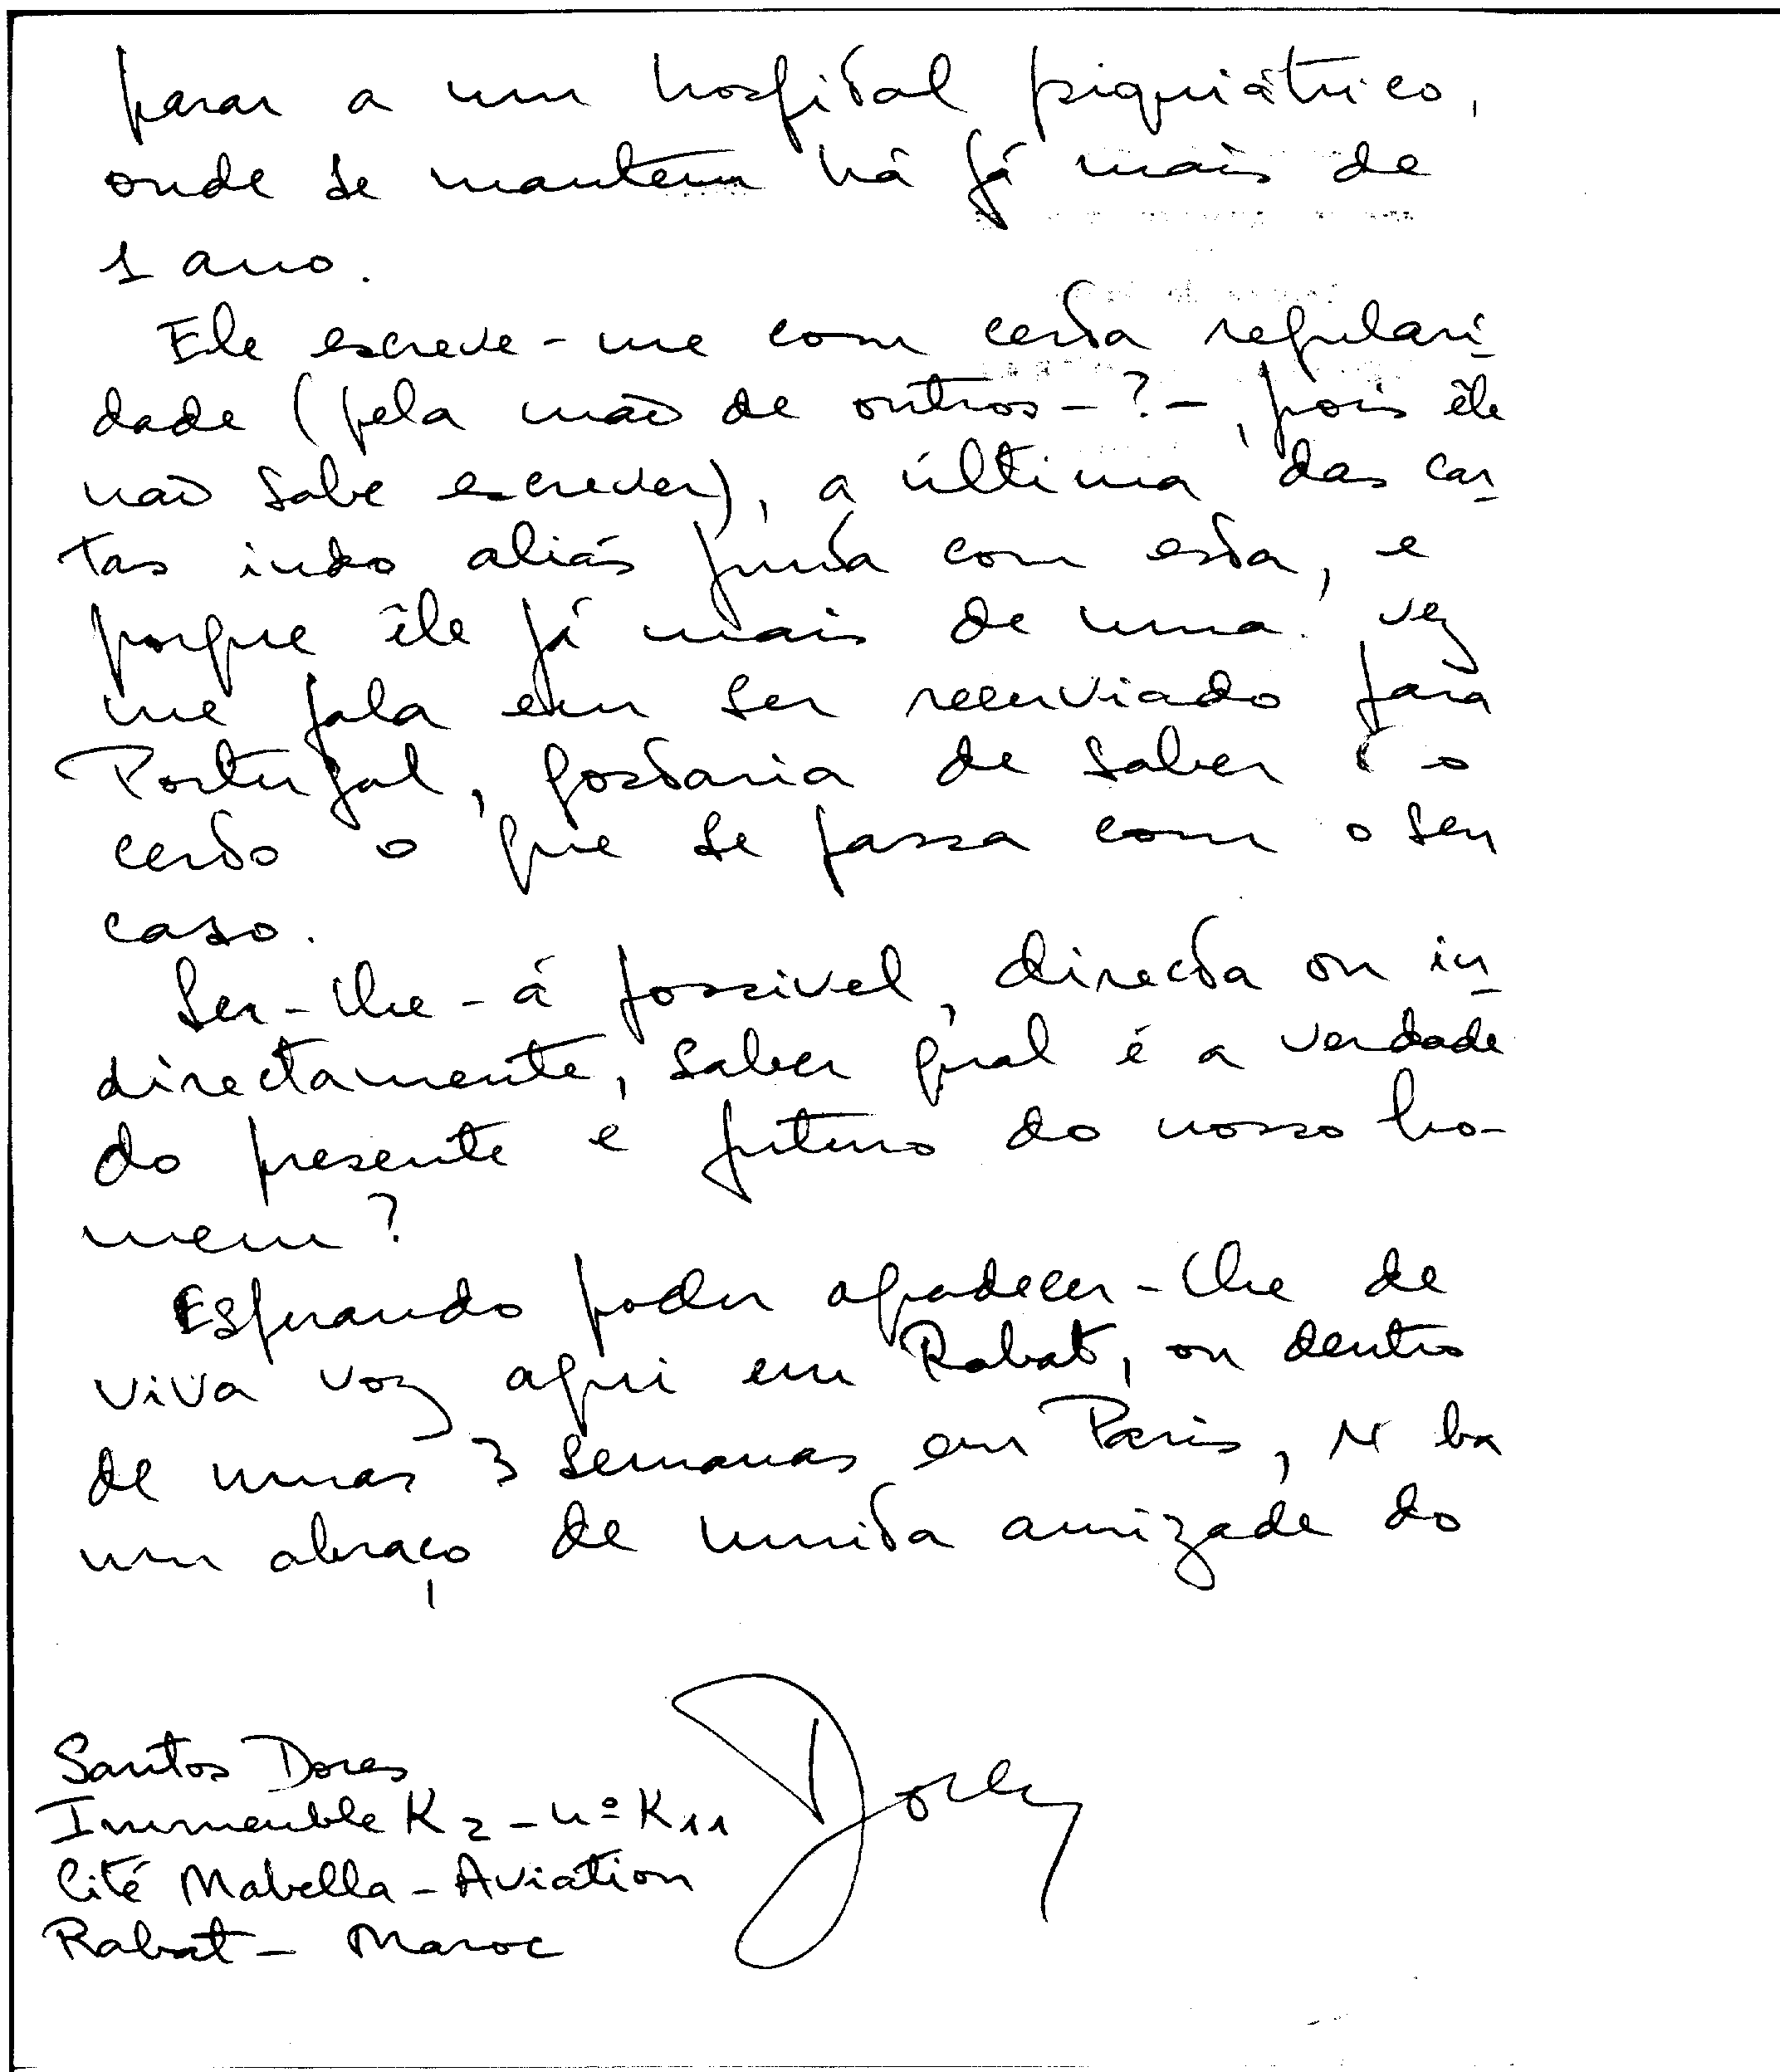 parar a um hospital psiquiátrico,
onde se mantem há já mais de
1 ano.
Ele escreve-me com certa regulari-
dade (pela mão de outros-?-, pois êle
não sabe escrever), a última das car-
tas indo aliás junta com esta, e
porque êle já mais de uma vez
me fala em ser reenviado para
Portugal, gostaria de saber o
certo o que se passa com o seu
caso.
Ser-lhe-á possivel, directa ou in-
directamente, saber qual é a verdade
do presente e futuro do nosso ho-
mem?
Esperando poder agradecer-lhe de
viva voz aqui em Rabat, ou dentro
de umas 3 semanas em Paris,
um abraço de muita amizade do
Dores
Santos Dores
Immeuble K2 - nº K11
Cité Mabella - Aviation
Rabat - Maroc